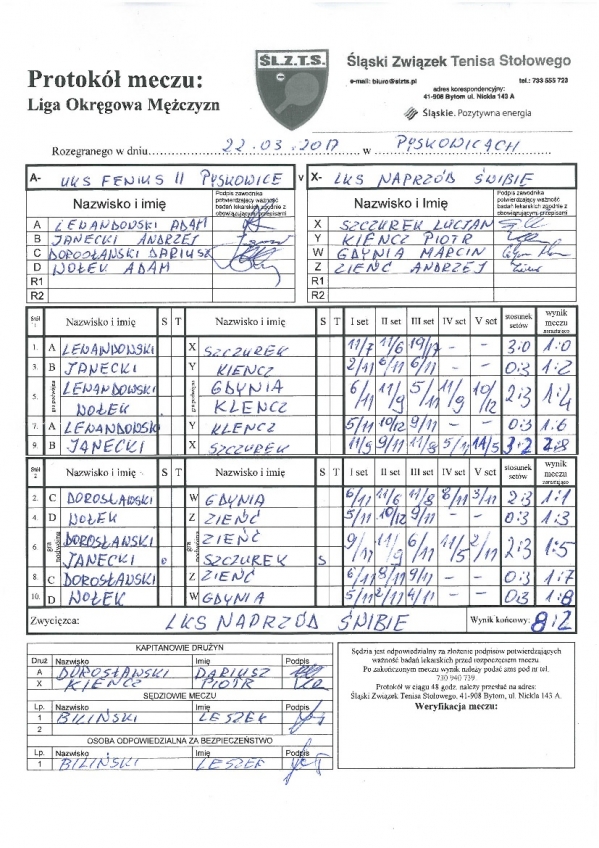 Protokół meczu:
Liga Okręgowa Mężczyzn
ŚL.Z.T.S.
Śląski Związek Tenisa Stołowego
e-mail: biuro@slzts.pl tel.: 733 555 723
adres korespondencyjny:
41-908 Bytom ul. Nickla 143 A
Śląskie. Pozytywna energia
Rozegranego w dniu 22.03.2017 w PYSKOWICACH
A- UKS FENIUS II PYSKOWICE v X- LKS NAPRZÓD ŚWIBIE
Nazwisko i imię Podpis zawodnika potwierdzający ważność badań lekarskich zgodnie z obowiązującym przepisami Nazwisko i imię Podpis zawodnika potwierdzający ważność badań lekarskich zgodnie z obowiązującym przepisami
A LEWANDOWSKI ADAM X SZCZUREK LUCJAN
B JANECKI ANDRZEJ Y KIENCZ PIOTR
C DOROSŁAWSKI DARIUSZ W GDYNIA MARCIN
D WOŁEK ADAM Z ZIENĆ ANDRZEJ
R1 R1
R2 R2
Stół 1 Nazwisko i imię S T Nazwisko i imię S T I set II set III set IV set V set stosunek setów wynik meczu narastająco
1. A LEWANDOWSKI X SZCZUREK 11/7 11/6 19/17 - - 3:0 1:0
3. B JANECKI Y KIENCZ 2/11 6/11 6/11 - - 0:3 1:2
5. gra podwójna LEWANDOWSKI GDYNIA 6/11 11/9 5/11 11/9 10/12 2:3 1:4
WOŁEK KLENCZ
7. A LEWANDOWSKI Y KLENCZ 5/11 10/12 9/11 - - 0:3 1:6
9. B JANECKI X SZCZUREK 11/9 9/11 11/8 5/11 14/5 3:2 2:8
Stół 2 Nazwisko i imię S T Nazwisko i imię S T I set II set III set IV set V set stosunek setów wynik meczu narastająco
2. C DOROSŁAWSKI W GDYNIA 6/11 11/6 11/8 8/11 3/11 2:3 1:1
4. D WOŁEK Z ZIENĆ 5/11 10/12 9/11 - - 0:3 1:3
6. gra podwójna DOROSŁAWSKI ZIENĆ 9/11 11/9 6/11 11/5 2/11 2:3 1:5
JANECKI o SZCZUREK S
8. C DOROSŁAWSKI Z ZIENĆ 6/11 8/11 9/11 - - 0:3 1:7
10. D WOŁEK W GDYNIA 5/11 2/11 4/11 - - 0:3 1:8
Zwycięzca: LKS NAPRZÓD ŚWIBIE Wynik końcowy: 8:2
KAPITANOWIE DRUŻYN
Druż Nazwisko Imię Podpis
A DOROSŁAWSKI DARIUSZ
X KIENCZ PIOTR
SĘDZIOWIE MECZU
Lp. Nazwisko Imię Podpis
1 BILIŃSKI LESZEK
2
OSOBA ODPOWIEDZIALNA ZA BEZPIECZEŃSTWO
Lp. Nazwisko Imię Podpis
1 BILIŃSKI LESZEK
Sędzia jest odpowiedzialny za złożenie podpisów potwierdzających
ważność badań lekarskich przed rozpoczęciem meczu
Po zakończonym meczu wynik należy podać sms pod nr tel.
730 940 739
Protokół w ciągu 48 godz. należy przesłać na adres:
Śląski Związek Tenisa Stołowego, 41-908 Bytom, ul. Nickla 143 A.
Weryfikacja meczu: